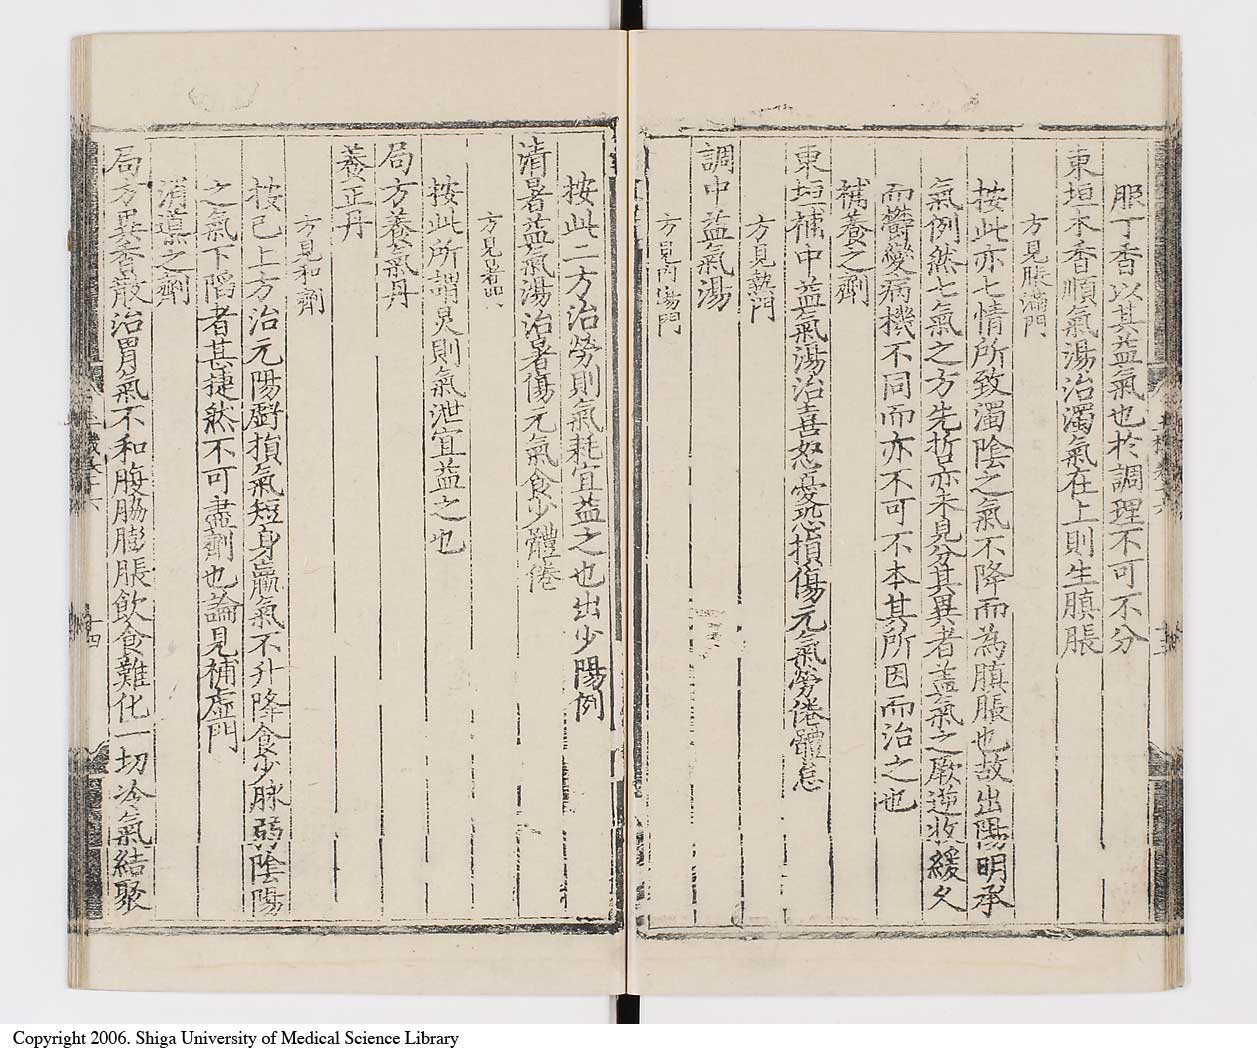 服丁香以其益氣也於調理不可不分
東垣木香順氣湯治濁氣在上則生䐜脹
方見脹滿門
按此亦七情所致濁陰之氣不降而為䐜脹也故出陽明承
氣例然七氣之方先哲亦未見分其異者盖氣之厥逆收緩久
而欝變病機不同而亦不可不本其所因而治之也
補養之劑
東垣補中益氣湯治喜怒憂恐損傷元氣勞倦體怠
方見熱門
調中益氣湯
方見内傷門
按此二方治勞則氣耗宜益之也出少陽例
清暑益氣湯治暑傷元氣食少體倦
方見暑門
按此所謂炅則氣泄宜益之也
局方養氣丹
養正丹
方見和劑
按已上方治元陽虧損氣短身羸氣不升降食少脉弱陰陽
之氣下陷者甚捷然不可盡劑也論見補虛門
消導之劑
局方異香散治胃氣不和腹脇膨脹飲食難化一切冷氣結聚
十四
Copyright 2006. Shiga University of Medical Science Library